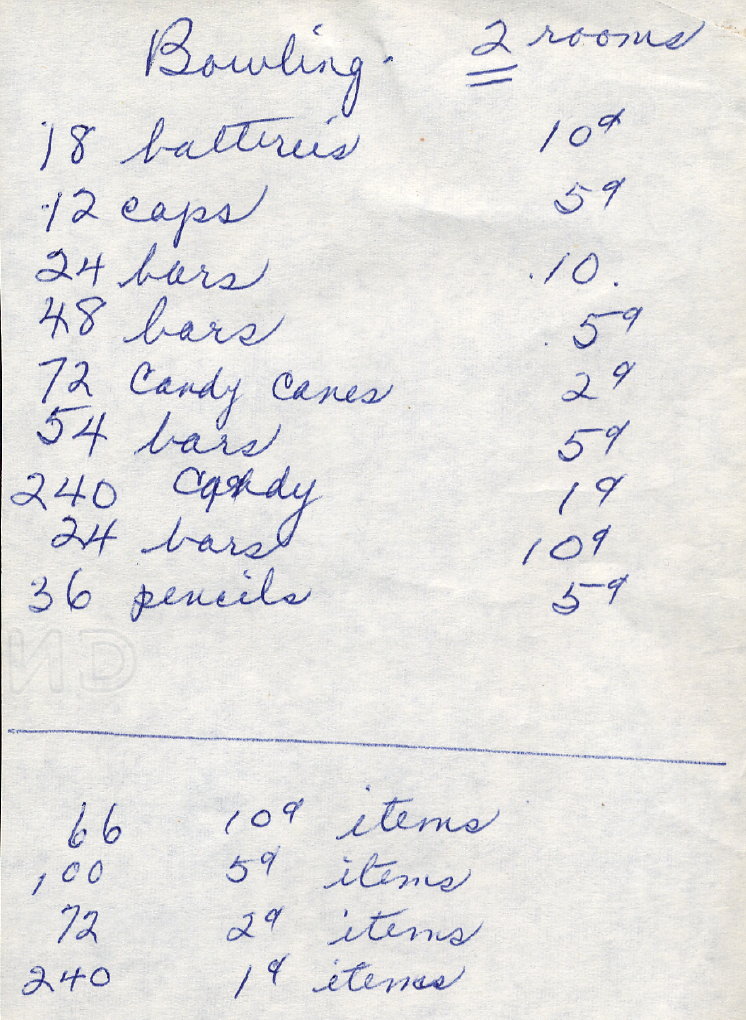 Bowling. 2 rooms
18 batteries 10¢
12 caps 5¢
24 bars .10.
48 bars 5¢
72 Candy Canes 2¢
54 bars 5¢
240 Candy 1¢
24 bars 10¢
36 pencils 5¢
66 10¢ items
100 5¢ items
72 2¢ items
240 1¢ items